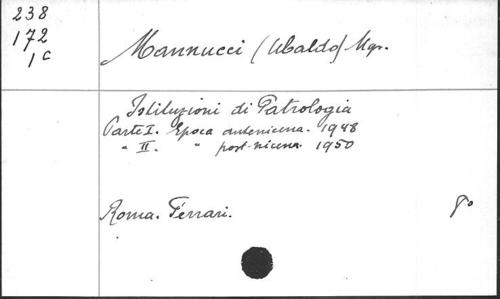 238
172
1c
Mannucci (Ubaldo) Mgr.
Istituzioni di Patrologia
Parte I. Epoca antenicena. 1948
" II. " post-nicena 1950
Roma. Ferrari.
8°